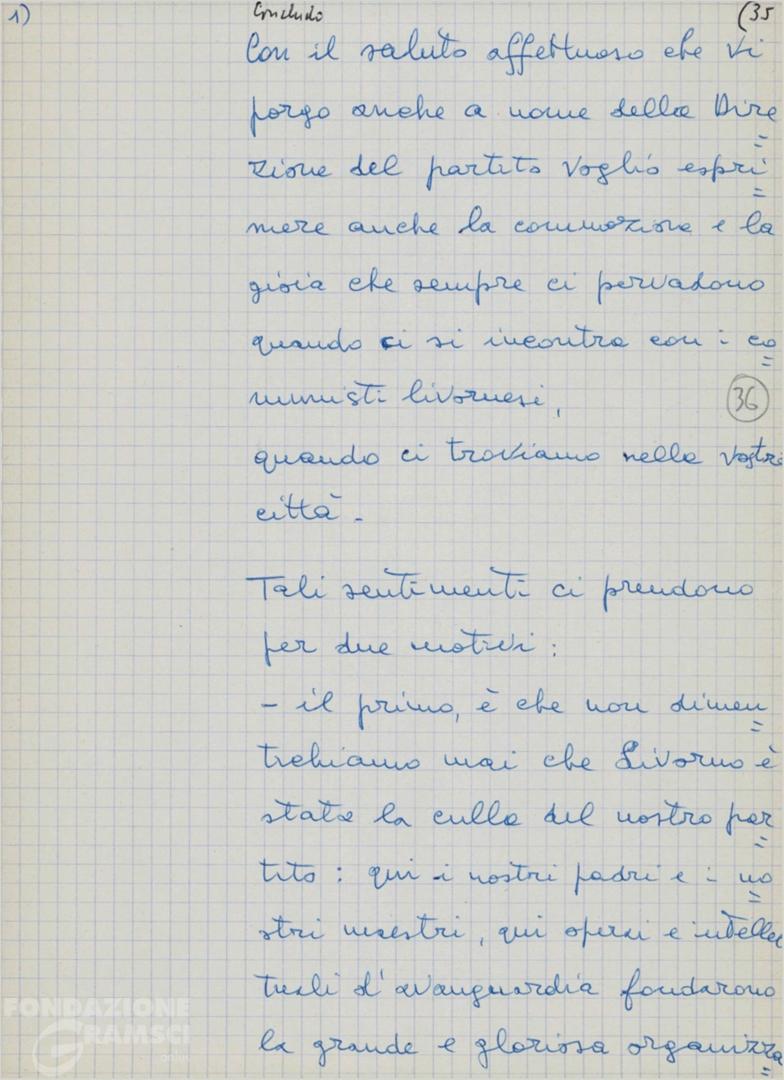 1)
Concludo
(35
Con il saluto affettuoso che vi
porgo anche a nome della Dire=
zione del partito voglio espri=
mere anche la commozione e la
gioia che sempre ci pervadono
quando ci si incontra con i co=
munisti livornesi,
36
quando ci troviamo nella vostra
città.
Tali sentimenti ci prendono
per due motivi:
- il primo, è che non dimen=
tichiamo mai che Livorno è
stata la culla del nostro par=
tito: qui i nostri padri e i no=
stri maestri, qui operai e intellet
tuali d'avanguardia fondarono
la grande e gloriosa organizza=
FONDAZIONE
GRAMSCI
onlus